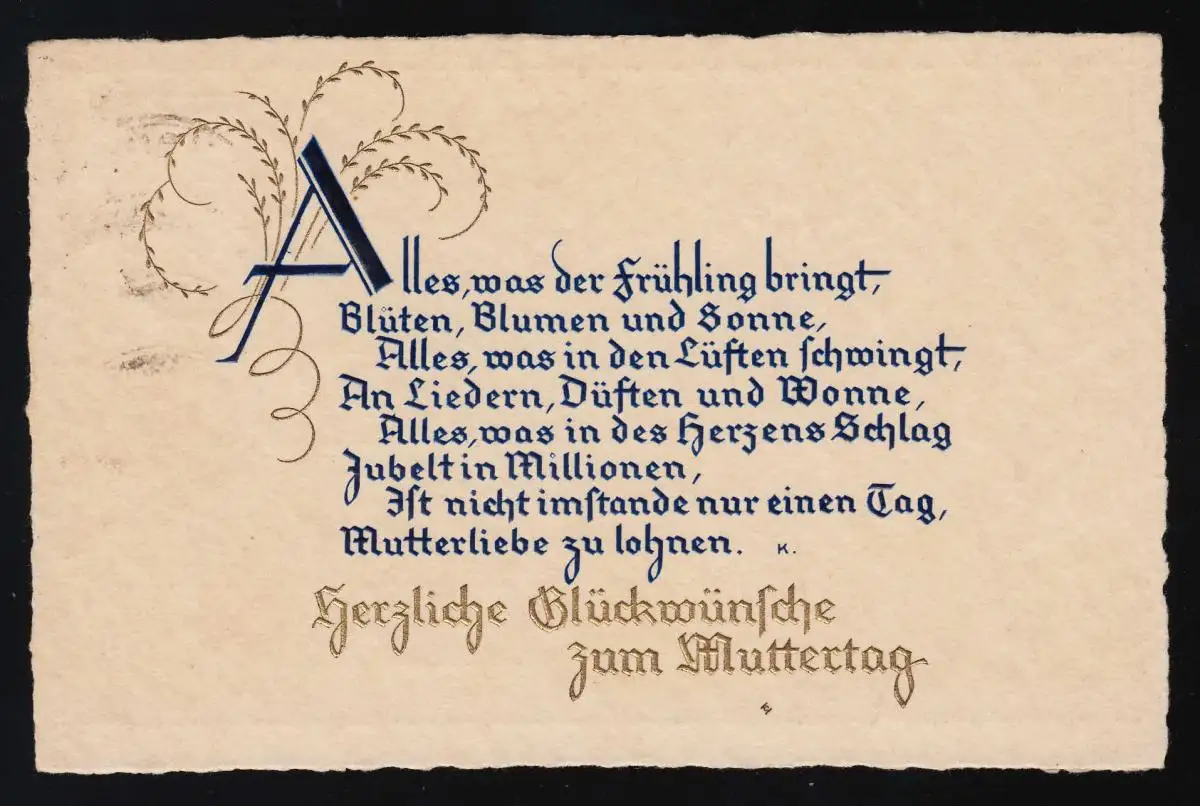 Alles, was der Frühling bringt,
Blüten, Blumen und Sonne,
Alles, was in den Lüften ſchwingt,
An Liedern, Düften und Wonne,
Alles, was in des Herzens Schlag
Jubelt in Millionen,
Iſt nicht imſtande nur einen Tag,
Mutterliebe zu lohnen. K.
Herzliche Glückwünſche
zum Muttertag
E